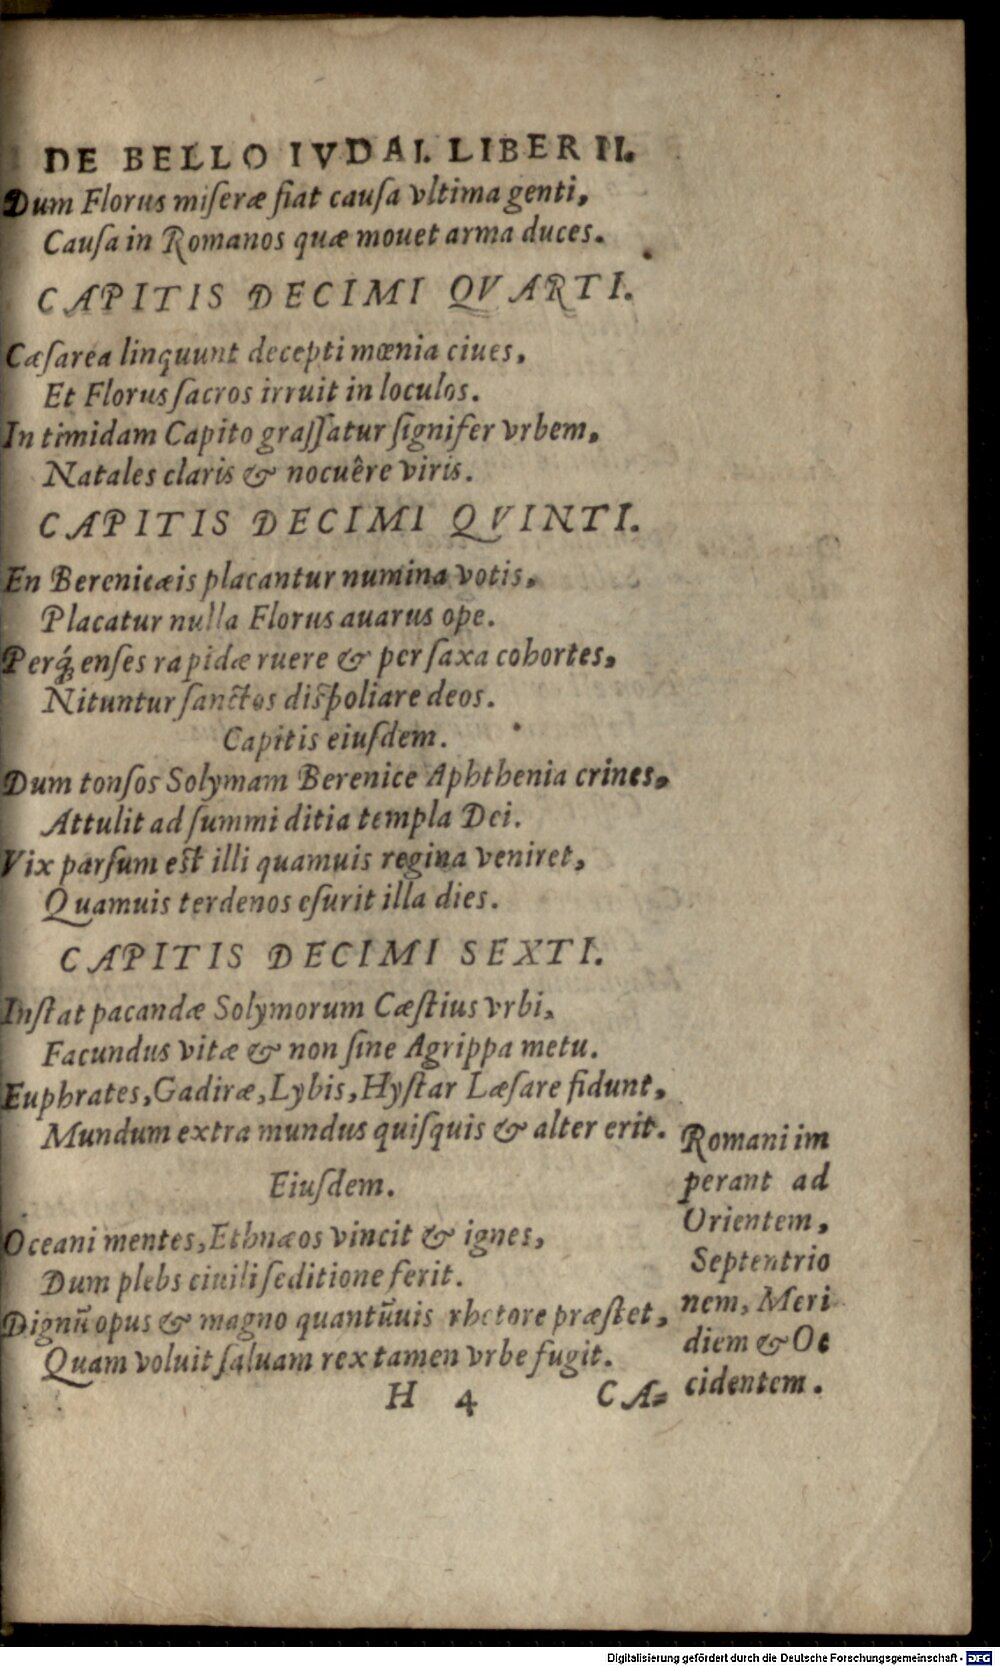 DE BELLO IVDAI. LIBER II.
Dum Florus miseræ fiat causa vltima genti,
Causa in Romanos quæ mouet arma duces.
CAPITIS DECIMI QVARTI.
Cæsarea linquunt decepti mœnia ciues,
Et Florus sacros irruit in loculos.
In timidam Capito grassatur signifer vrbem,
Natales claris & nocuêre viris.
CAPITIS DECIMI QVINTI.
En Berenicæis placantur numina votis,
Placatur nulla Florus auarus ope.
Perq́; enses rapidæ ruere & per saxa cohortes,
Nituntur sanctos dispoliare deos.
Capitis eiusdem.
Dum tonsos Solymam Berenice Aphthenia crines,
Attulit ad summi ditia templa Dei.
Vix parsum est illi quamuis regina veniret,
Quamuis terdenos esurit illa dies.
CAPITIS DECIMI SEXTI.
Instat pacandæ Solymorum Cæstius vrbi,
Facundus vitæ & non sine Agrippa metu.
Euphrates, Gadiræ, Lybis, Hystar Læsare fidunt,
Mundum extra mundus quisquis & alter erit.
Romani im
perant ad
Orientem,
Septentrio
nem, Meri
diem & Oc
cidentem.
Eiusdem.
Oceani mentes, Ethnæos vincit & ignes,
Dum plebs ciuili seditione ferit.
Dignū opus & magno quantūuis rhetore præstet,
Quam voluit saluam rex tamen vrbe fugit.
H 4 CA=
Digitalisierung gefördert durch die Deutsche Forschungsgemeinschaft - DFG